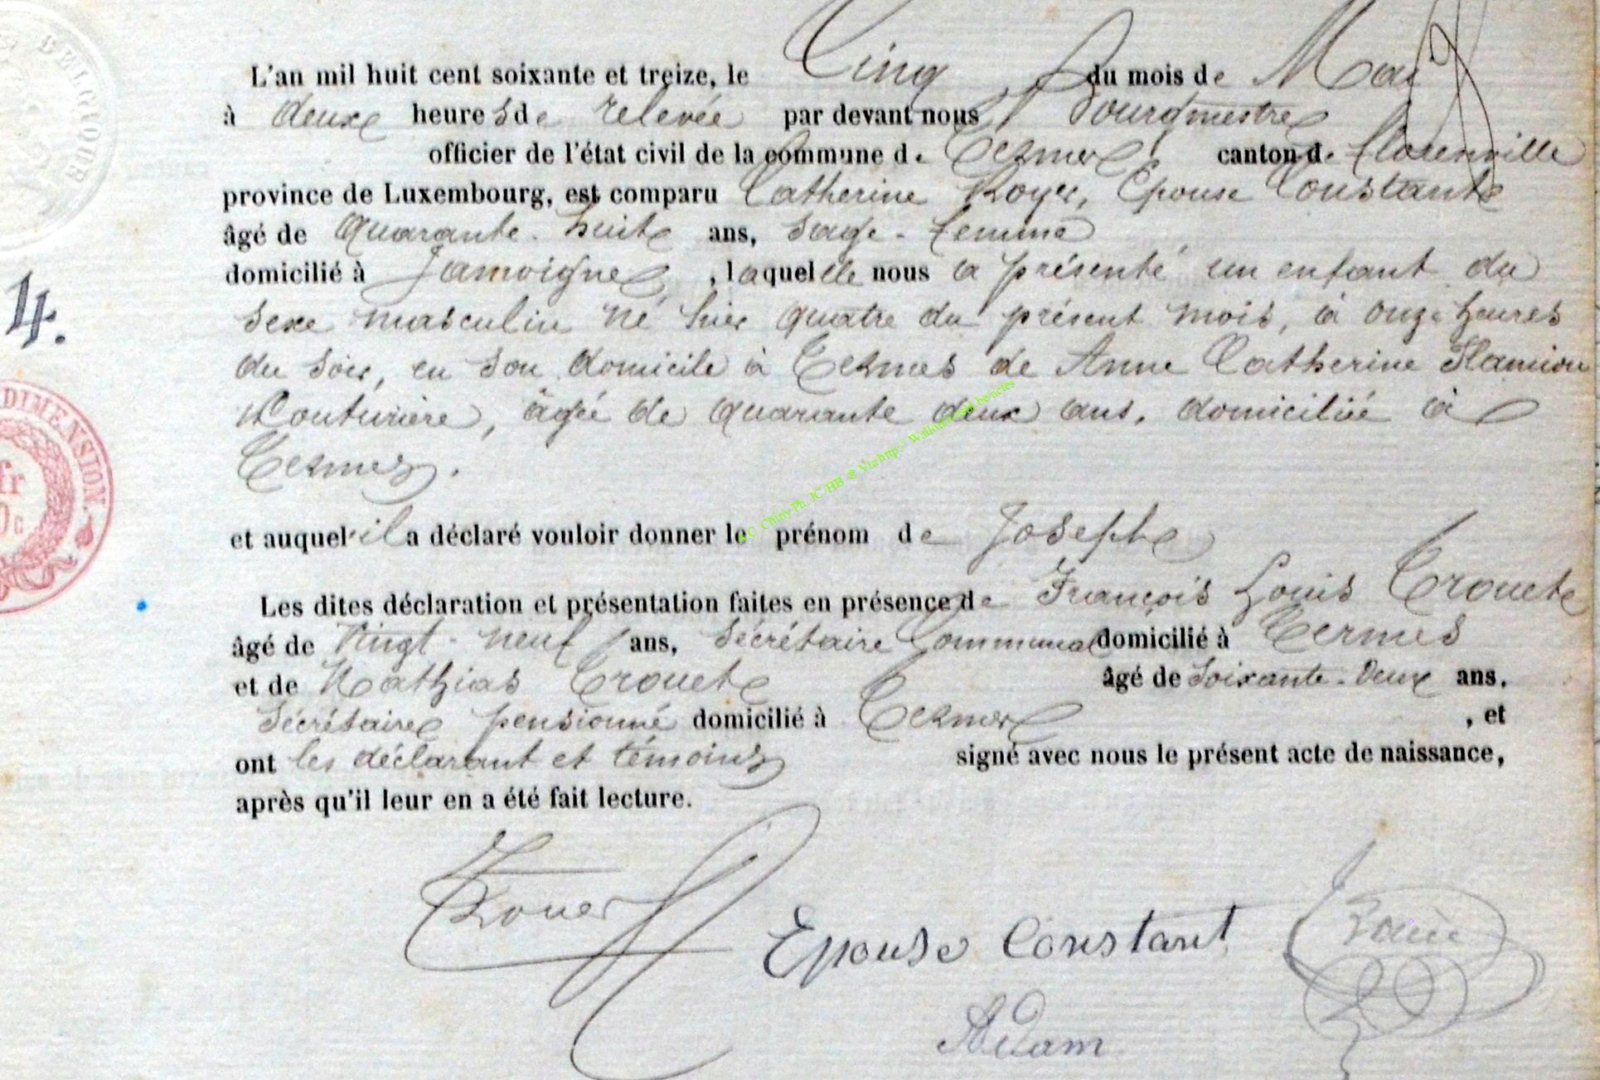 BELGIQUE
L'an mil huit cent soixante et treize, le Cinq du mois de Mai
à deux heures de relevée par devant nous Bourgmestre
officier de l'état civil de la commune de Termes canton de Florenville
province de Luxembourg, est comparu Catherine Royer, Epouse Constant
âgé de Quarante-huit ans, Sage-femme
domicilié à Jamoigne, laquelle nous a présenté un enfant du
4.
Sexe masculin né hier quatre du présent mois, à onze heures
du soir, en son domicile à Termes de Anne Catherine Flamion
Couturière, âgée de quarante deux ans, domiciliée à
DIMENSION.
fr
c
Termes.
et auquel il a déclaré vouloir donner le prénom de Joseph
Les dites déclaration et présentation faites en présence de François Louis
âgé de Vingt-neuf ans, Sécrétaire Communal domicilié à Termes
et de Mathias âgé de Soixante-Deux ans.
Sécrétaire pensionné domicilié à Termes, et
ont les déclarant et témoins signé avec nous le présent acte de naissance,
après qu'il leur en a été fait lecture.
Epouse Constant
Adam